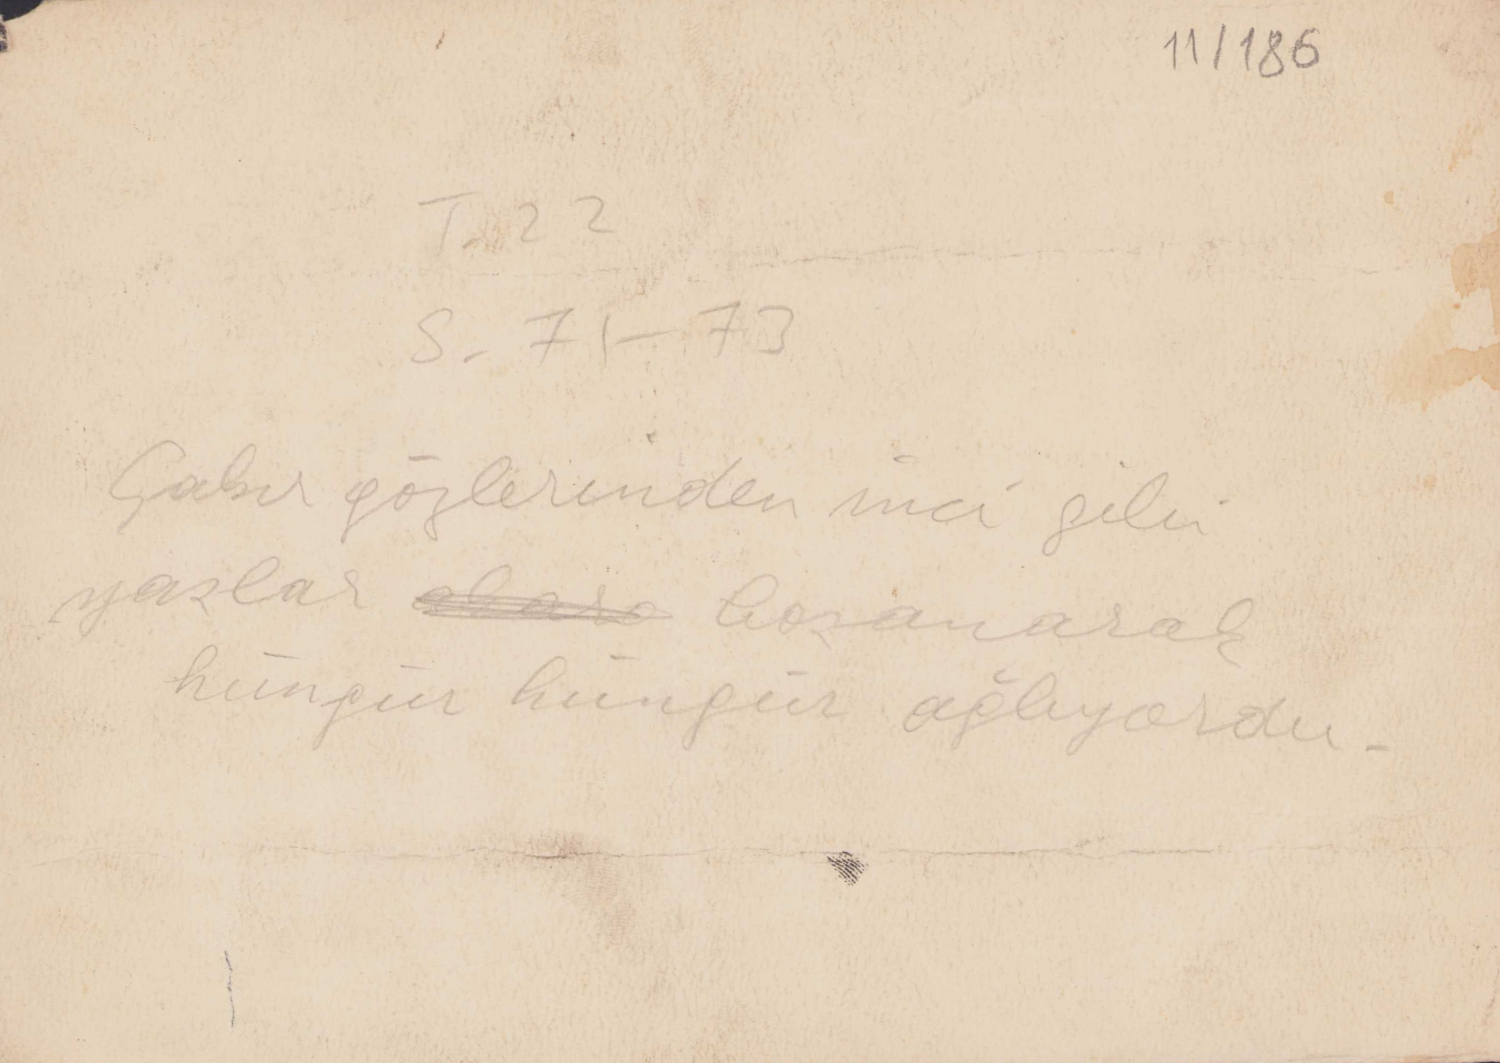 11/186
T. 22
S. 71-73
Çakır gözlerinden inci gibi
yaşlar boşanarak
hüngür hüngür ağlıyordu.